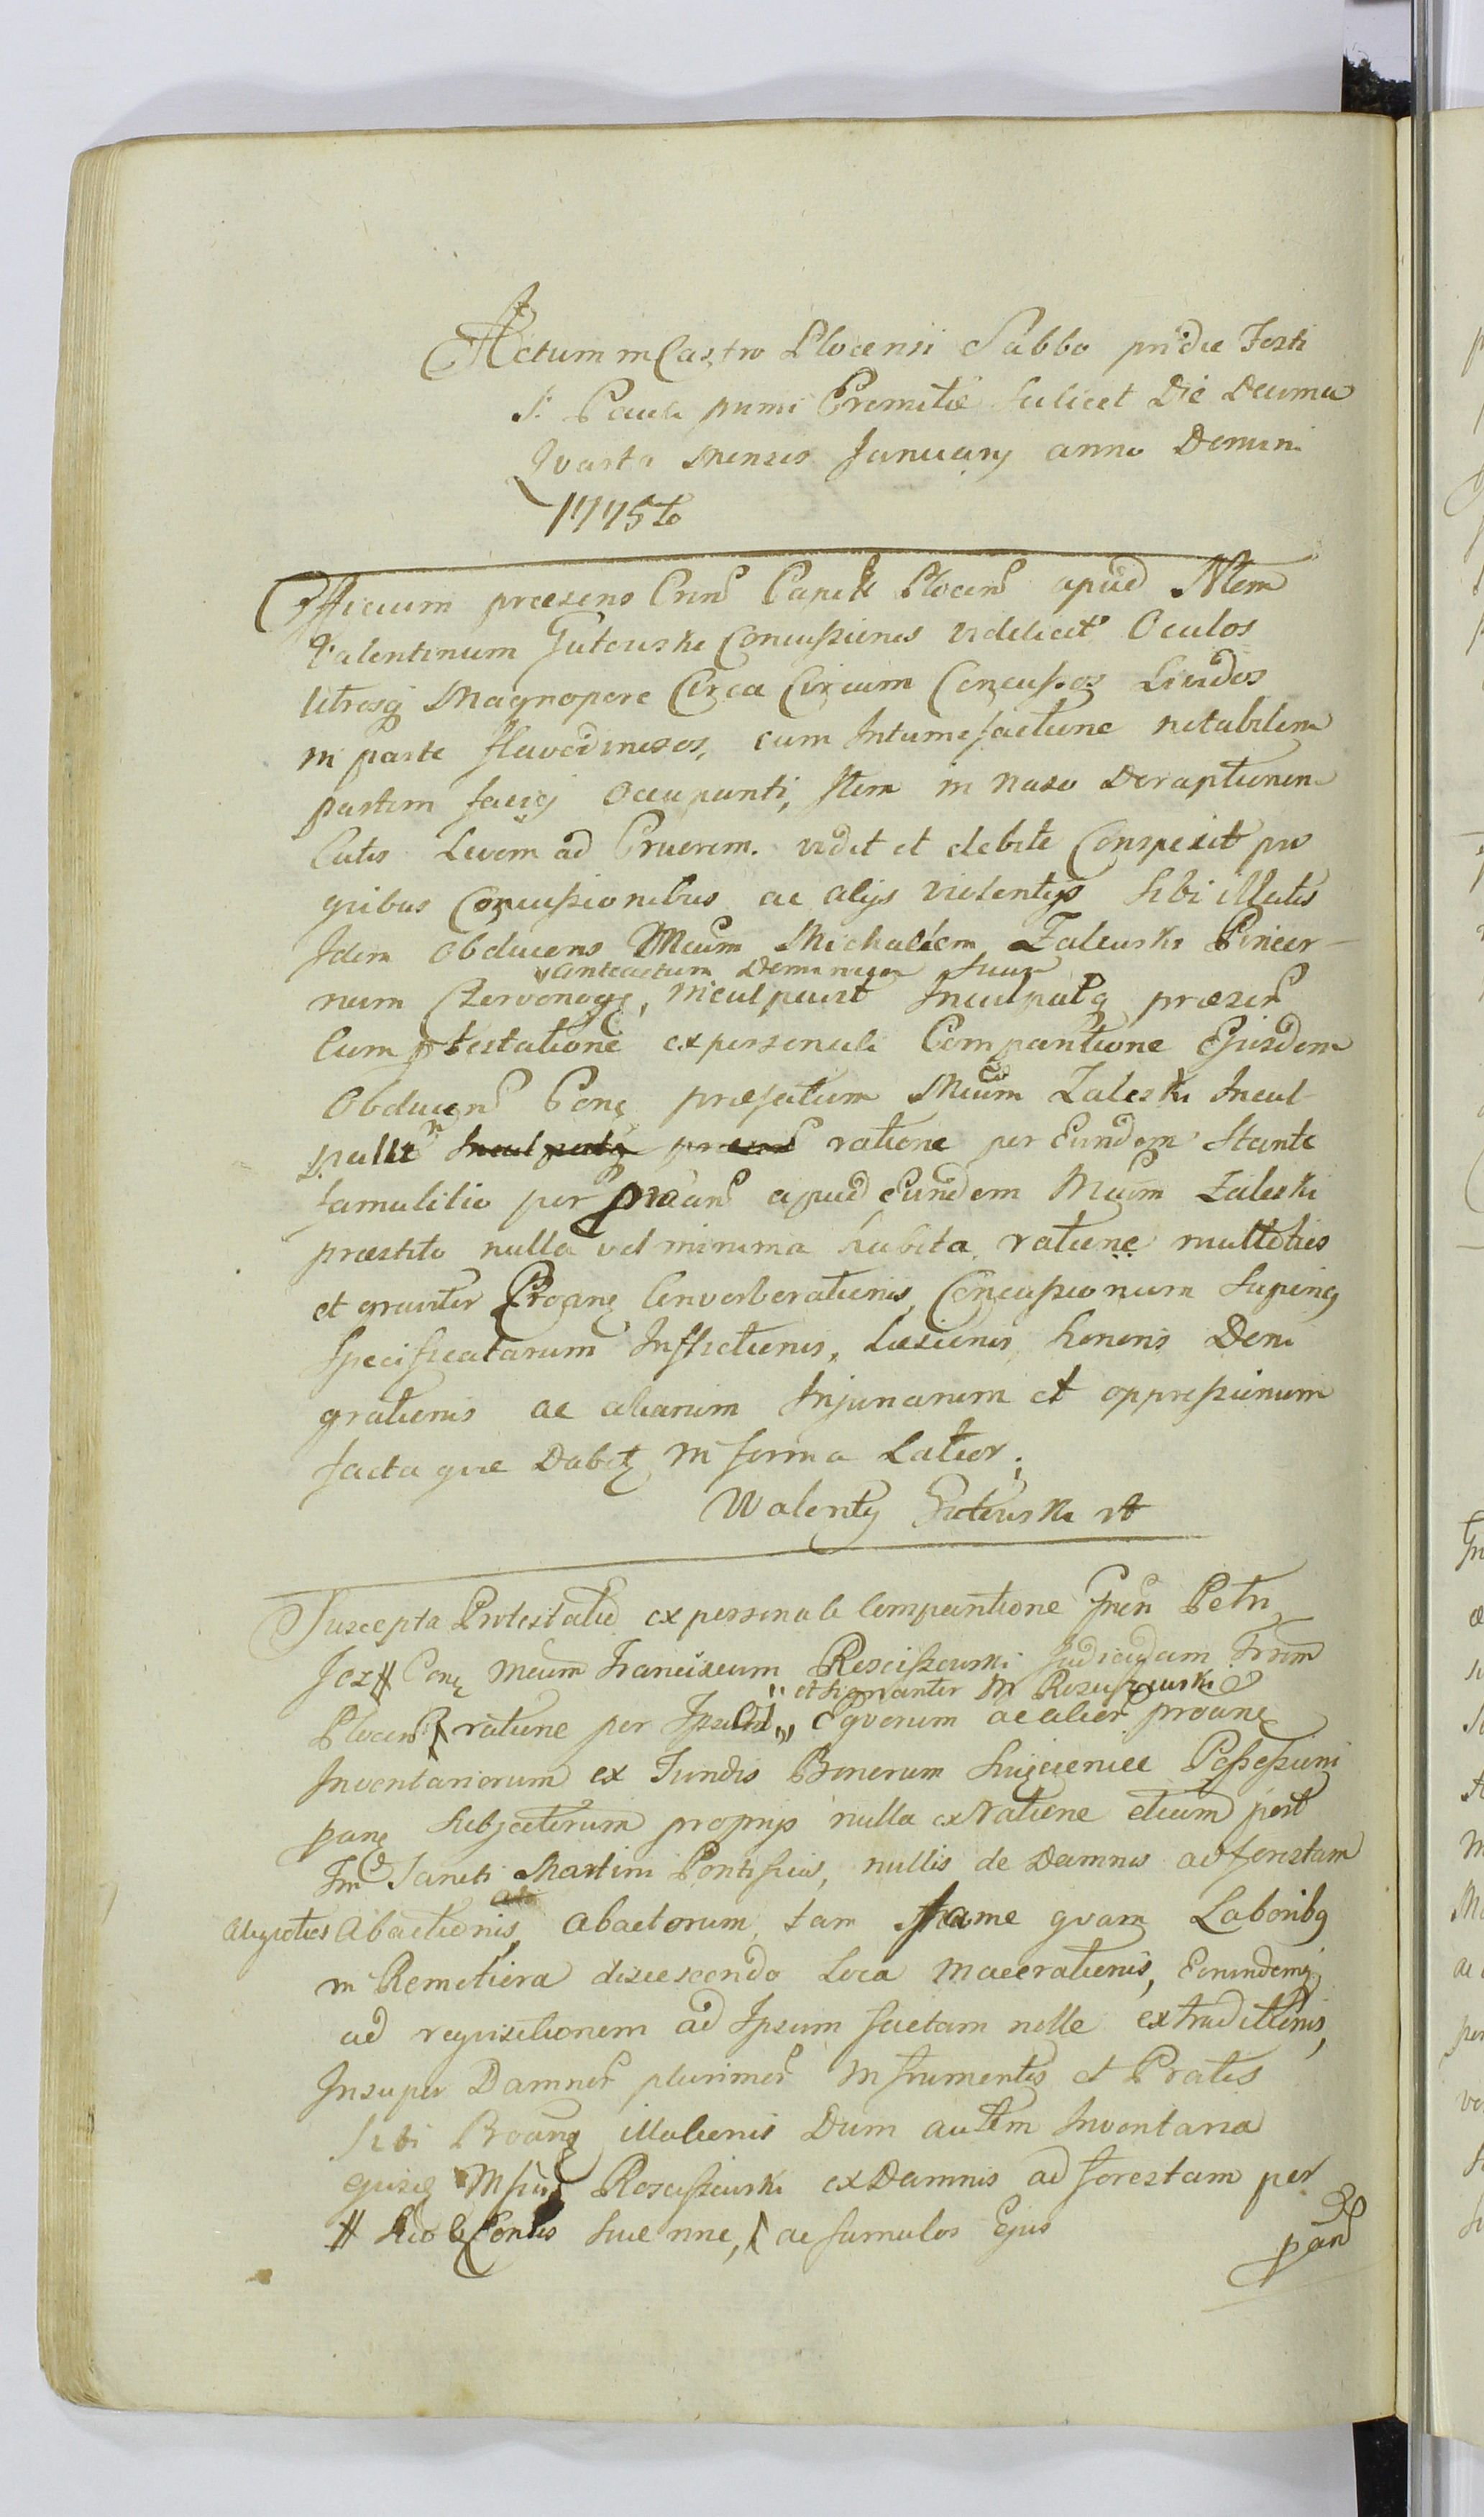 Actum in Castro Plocensi Sabbo pridie Festi
S. Pauli primi Eremitæ scilicet Die Decima
Qvarta Mensis January anno Domini
1775to
Officium præsens Crim Capitle Plocen apud Nlem
Valentinum Gutowski Concussiones videlicet Oculos
Utrosq Magnopere Circa Circum Concussos Lividos
in parte flavedinesos, cum Intumefactione notabilem
partem faciej Occupanti, Item in naso Deraptionem
Cutis Levem ad Cruorem. vidit et debite Conspexit pro
qvibus Concussionibus ac alijs violentijs sibi illatis
Idem Obducens Mcum Michaëlem Zalewski Pincer-
anteactum Dominum Suum
num Czerwonogr, inculpavit Inculpatq præsen
Cum ptestatione ex personali Comparitione Ejusdem
Obducen Conq præfatum Mcum Zaleski Incul-
patt Inculpatq præsen ratione per Eundem Stante
famulitio per proan apud Eundem Mcum Zaleski
præstito nulla vel minima habita ratione multoties
et graviter Proanq Converberationis, Concussionum Superiq
Specificatarum Inflictionis, Læsionis, honoris Deni
grationis ac aliarum Injuriarum et oppressionum
facta qvæ Dabitq in forma Latior;
Walenty Gutowski mp
Suscepta Protestatio ex personali Comparitione Gnen Petri
Jez # Conq Mcum Franciscum Rosciszewski Judicem Trrem
et signanter M Rosciszewski
Plocen ratione per Ipsum Eqvorum ac alior proanq
Inventariorum ex Fundis Bonorum Possessioni
panq Subjectorum proprijs nulla ex ratione etiam post
Fm Sancti Martini Pontificis, nullis de Damnis ad forestam
aliqvoties Abactionis, abactorum, tam fame qvam Laboribq
in Remotiora discescendo Loca Macerationis, Eorundemq
ad reqvisitionem ad Ipsum factam nolle extradittionis,
Insuper Damnor plurimor in frumentis et Pratis
Sibi Proanq illationis Dum autem Inventaria
Rosciszewski ex Damnis ad forestam per
# ac famulos Ejus
pan